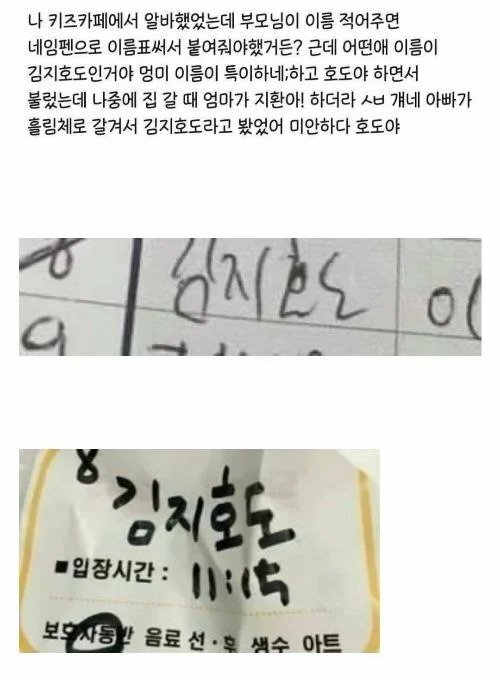 나 키즈카페에서 알바했었는데 부모님이 이름 적어주면
네임펜으로 이름표써서 붙여줘야했거든? 근데 어떤애 이름이
김지호도인거야 멍미 이름이 특이하네;하고 호도야 하면서
불렀는데 나중에 집 갈 때 엄마가 지환아! 하더라 ㅅㅂ 걔네 아빠가
흘림체로 갈겨서 김지호도라고 봤었어 미안하다 호도야
8 김지호도 이
9
8
김지호도
■입장시간 : 11:15
보호자동반 음료 선·후 생수 아트